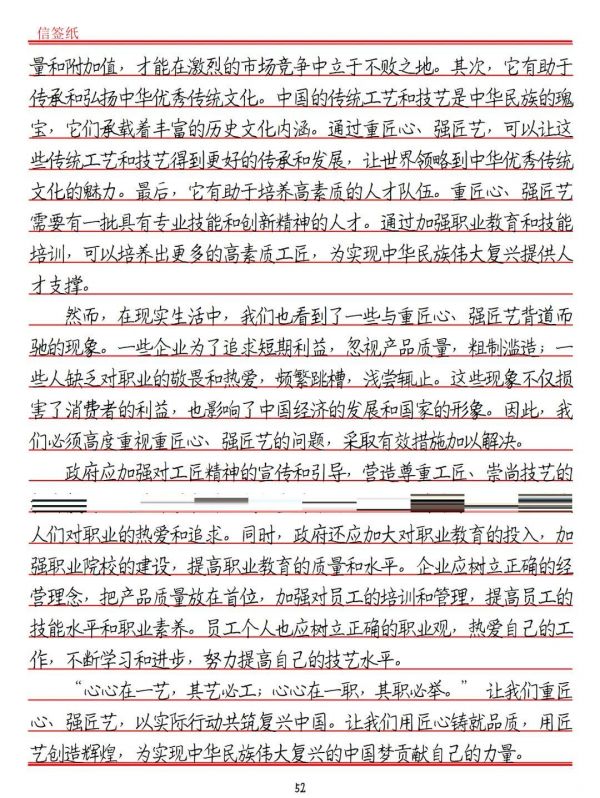 信签纸
量和附加值，才能在激烈的市场竞争中立于不败之地。其次，它有助于
传承和弘扬中华优秀传统文化。中国的传统工艺和技艺是中华民族的瑰
宝，它们承载着丰富的历史文化内涵。通过重匠心、强匠艺，可以让这
些传统工艺和技艺得到更好的传承和发展，让世界领略到中华优秀传统
文化的魅力。最后，它有助于培养高素质的人才队伍。重匠心、强匠艺
需要有一批具有专业技能和创新精神的人才。通过加强职业教育和技能
培训，可以培养出更多的高素质工匠，为实现中华民族伟大复兴提供人
才支撑。
然而，在现实生活中，我们也看到了一些与重匠心、强匠艺背道而
驰的现象。一些企业为了追求短期利益，忽视产品质量，粗制滥造；一
些人缺乏对职业的敬畏和热爱，频繁跳槽，浅尝辄止。这些现象不仅损
害了消费者的利益，也影响了中国经济的发展和国家的形象。因此，我
们必须高度重视重匠心、强匠艺的问题，采取有效措施加以解决。
政府应加强对工匠精神的宣传和引导，营造尊重工匠、崇尚技艺的
人们对职业的热爱和追求。同时，政府还应加大对职业教育的投入，加
强职业院校的建设，提高职业教育的质量和水平。企业应树立正确的经
营理念，把产品质量放在首位，加强对员工的培训和管理，提高员工的
技能水平和职业素养。员工个人也应树立正确的职业观，热爱自己的工
作，不断学习和进步，努力提高自己的技艺水平。
“心心在一艺，其艺必工；心心在一职，其职必举。” 让我们重匠
心、强匠艺，以实际行动共筑复兴中国。让我们用匠心铸就品质，用匠
艺创造辉煌，为实现中华民族伟大复兴的中国梦贡献自己的力量。
52